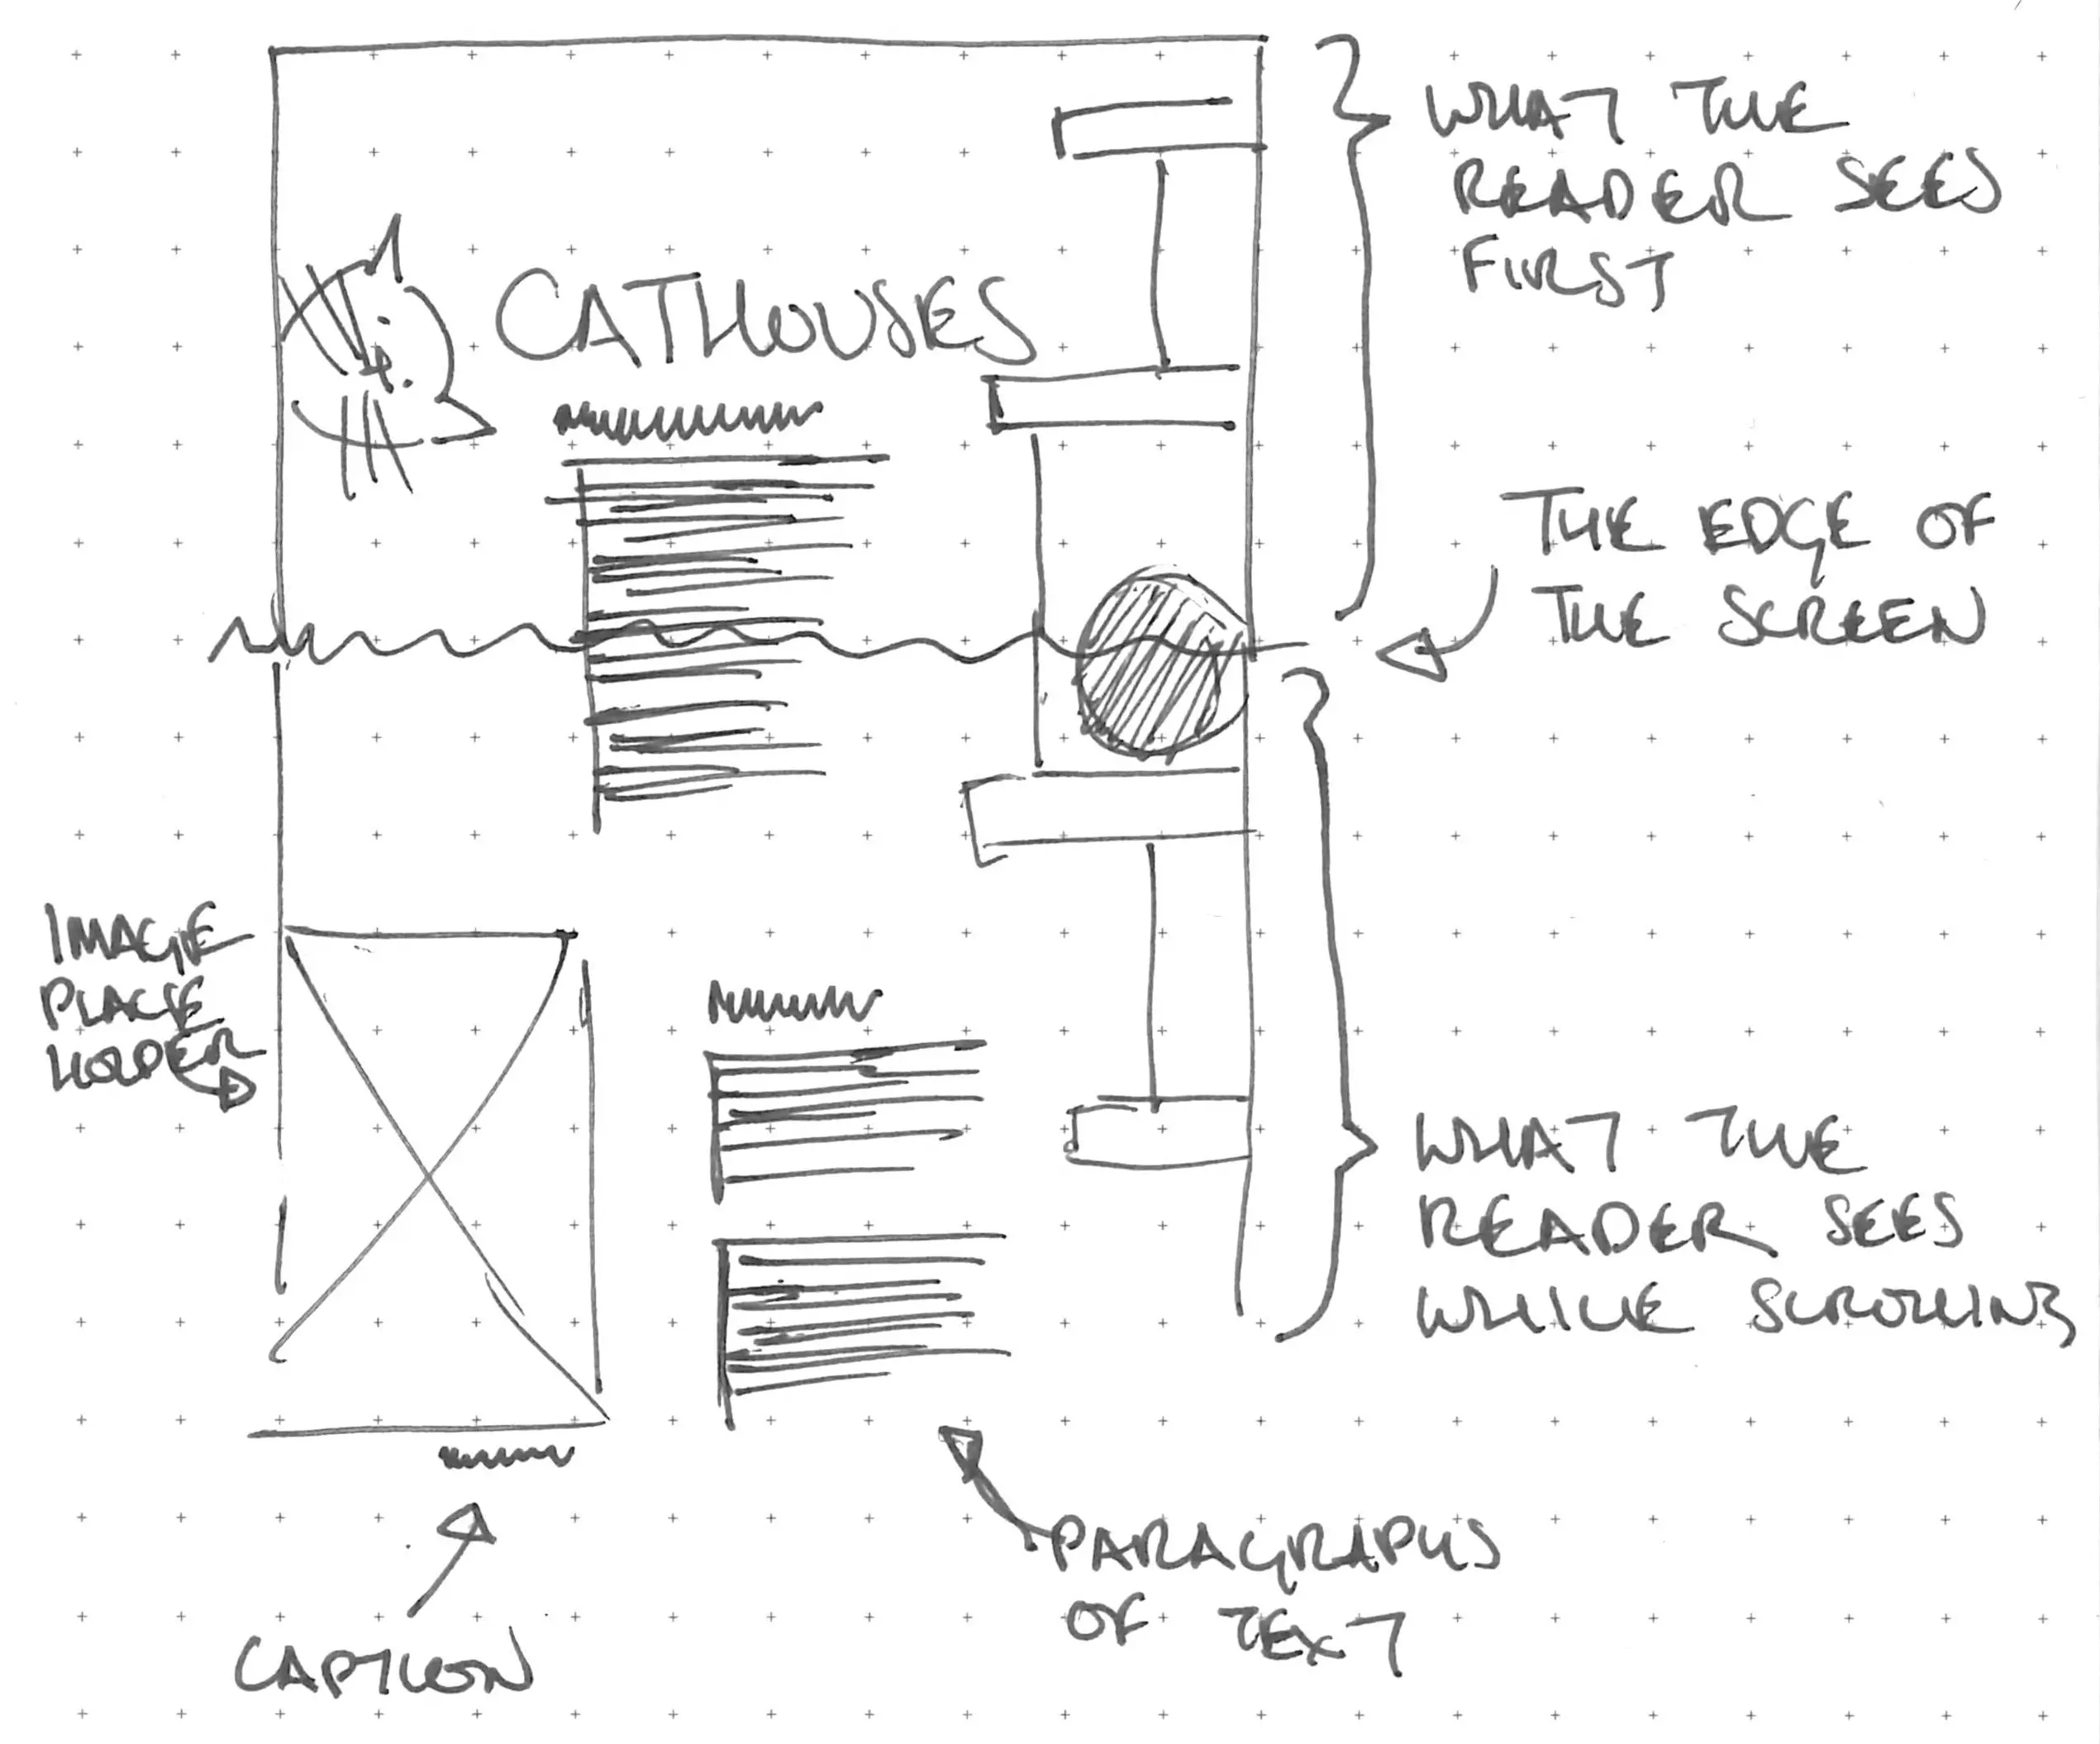 WHAT THE
READER SEES
FIRST
CATHOUSES
THE EDGE OF
THE SCREEN
IMAGE
PLACE
HOLDER
WHAT THE
READER SEES
WHILE SCROLLING
PARAGRAPHS
OF TEXT
CAPTION